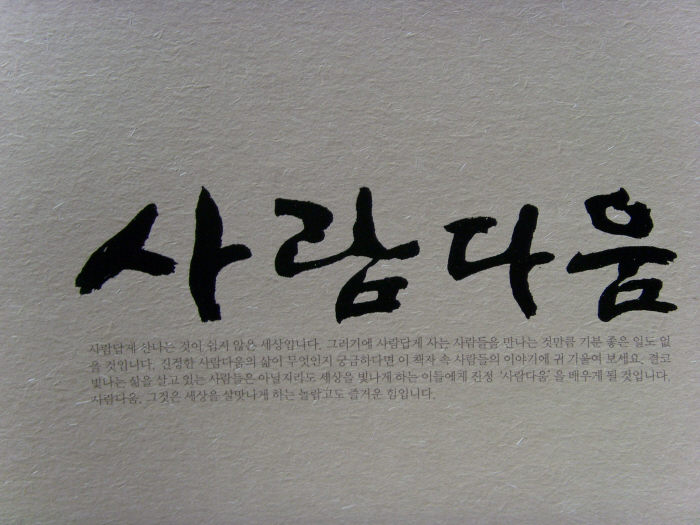 사람다움
사람답게 산다는 것이 쉽지 않은 세상입니다. 그러기에 사람답게 사는 사람들을 만나는 것만큼 기분 좋은 일도 없
을 것입니다. 진정한 사람다움의 삶이 무엇인지 궁금하다면 이 책자 속 사람들의 이야기에 귀 기울여 보세요. 결코
빛나는 삶을 살고 있는 사람들은 아닐지라도 세상을 빛나게 하는 이들에게 진정 '사람다움'을 배우게 될 것입니다.
사람다움, 그것은 세상을 살맛나게 하는 놀랍고도 즐거운 힘입니다.